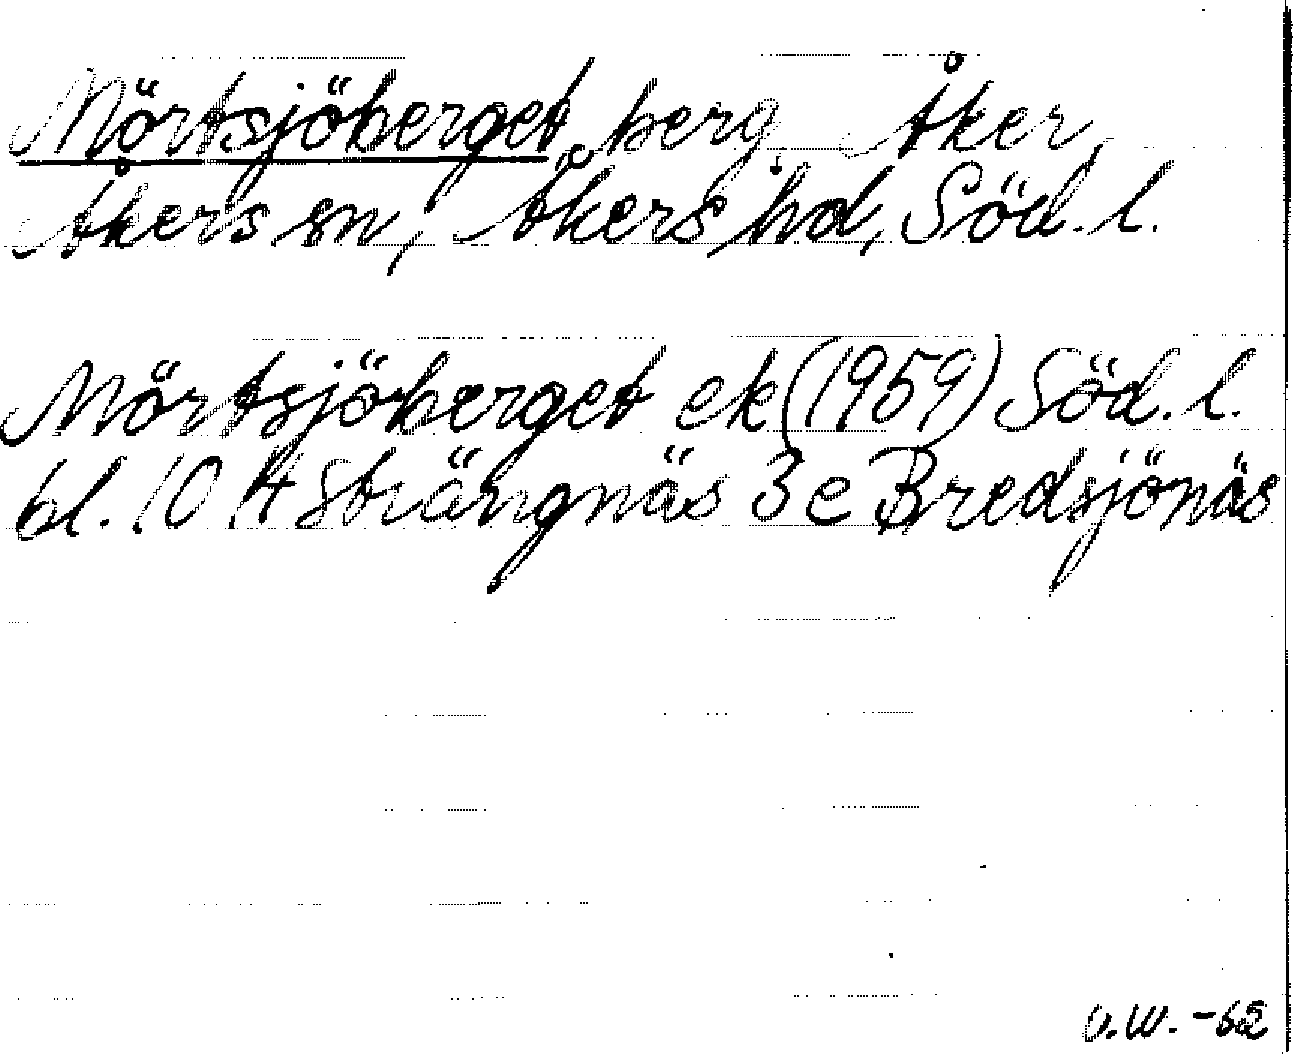 Mörtsjöberget, berg, Åker,
Åkers sn, Åkers hd, Söd. l.
Mörtsjöberget ek (1959) Söd. l.
bl. 10 H Strängnäs 3 e Bredsjönäs
O.W. -62